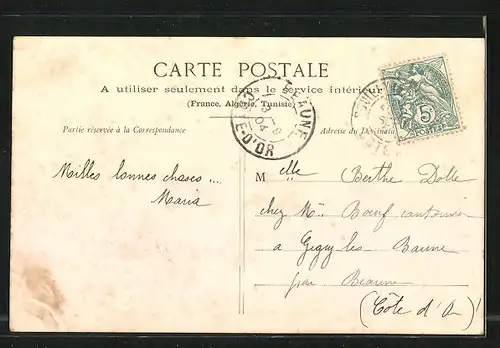 CARTE POSTALE
A utiliser seulement dans le service intérieur
(France, Algérie, Tunisie)
Partie réservée à la Correspondance
Adresse du Destinata
BEAUNE
04
COTE-D'OR
5
POSTES
Milles bonnes choses ...
Maria
Melle Berthe Dolle
chez Mr Bœuf cantonnier
a Gigny les Baune
par Beaune
(Côte d'Or)